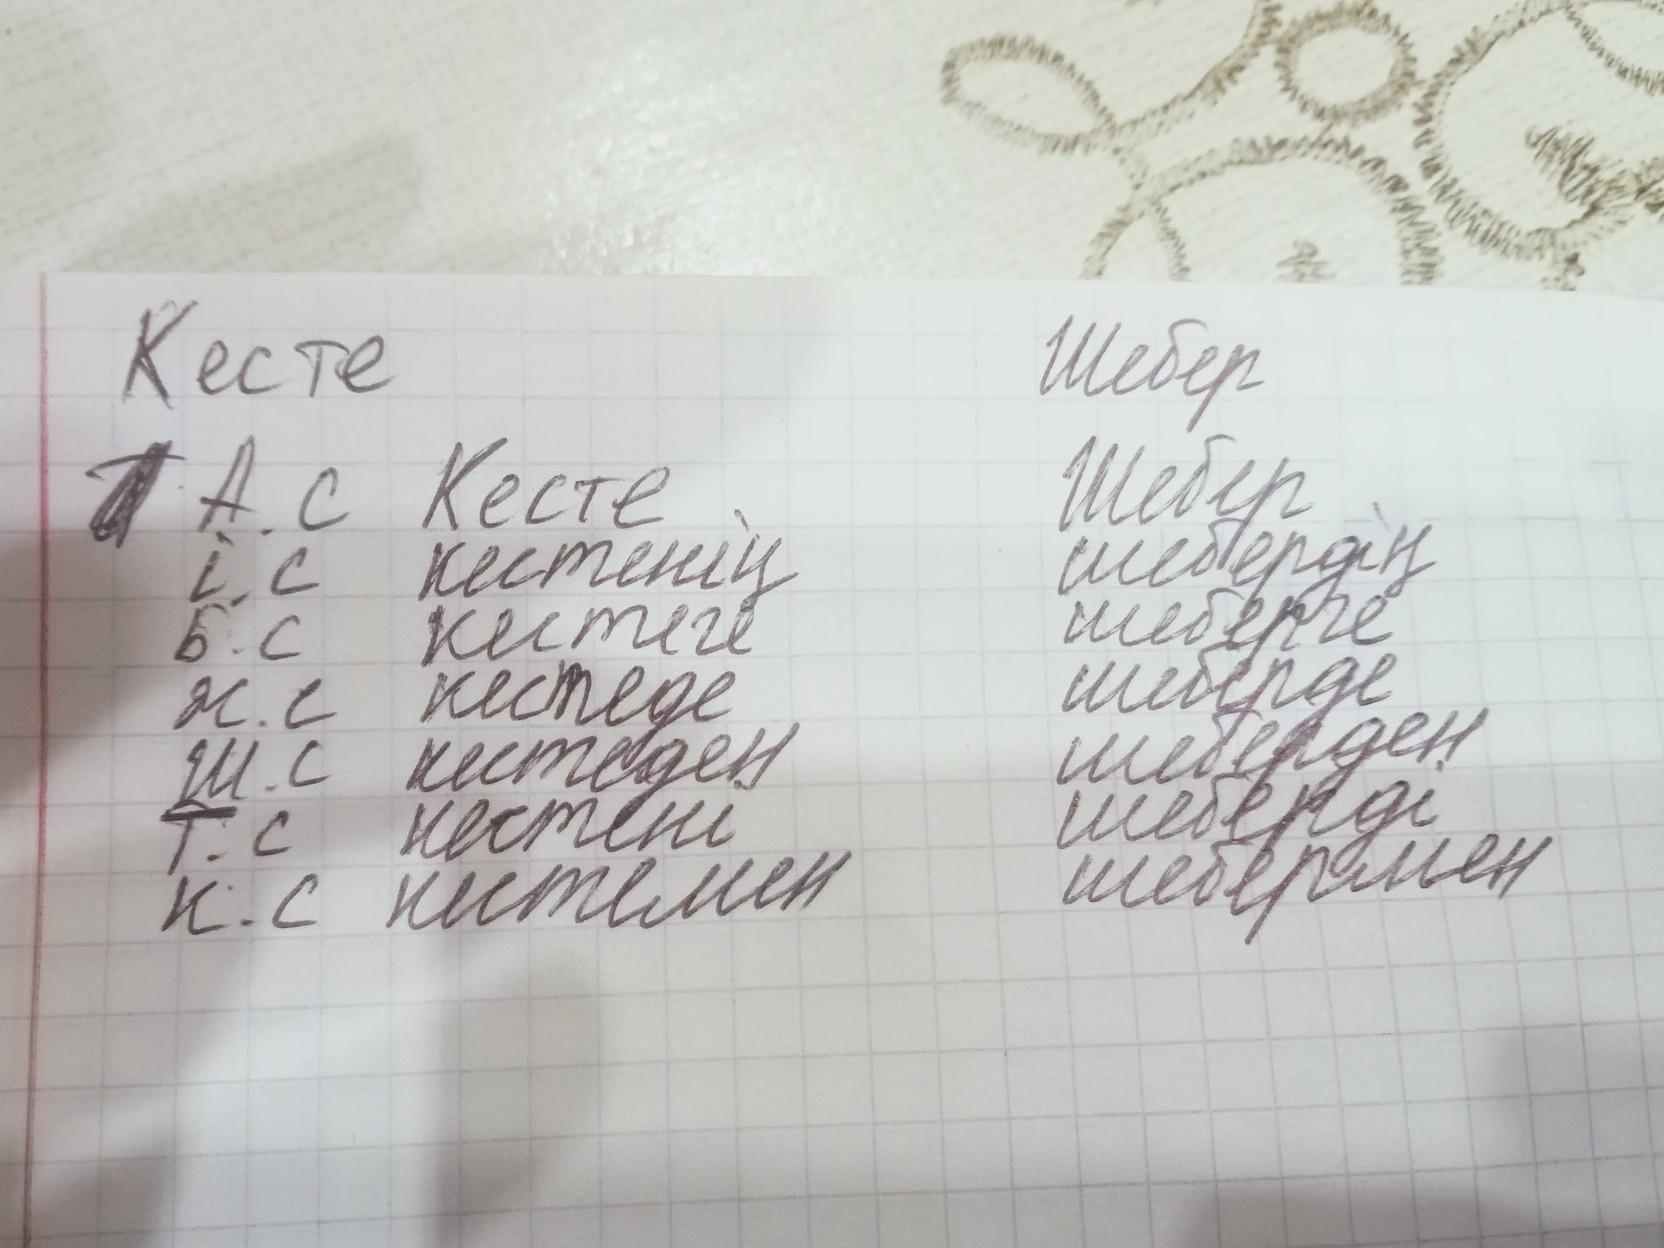 Кесте Шебер
А.с Кесте Шебер
І.с кестенің шебердің
Б.с кестеге шеберге
Ж.с кестеде шеберде
Ш.с кестеден шеберден
Т.с кестені шеберді
К.с кестемен шебермен